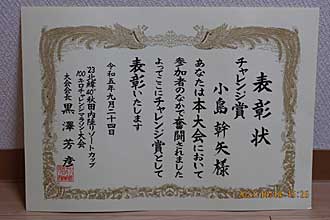 表彰状
チャレンジ賞
小島幹矢様
あなたは本大会において
参加者のなかで奮闘されました
よってここにチャレンジ賞として
表彰いたします
令和五年九月二十四日
'23北緯40°秋田内陸リゾートカップ
100キロチャレンジマラソン大会
大会会長 黒澤芳彦